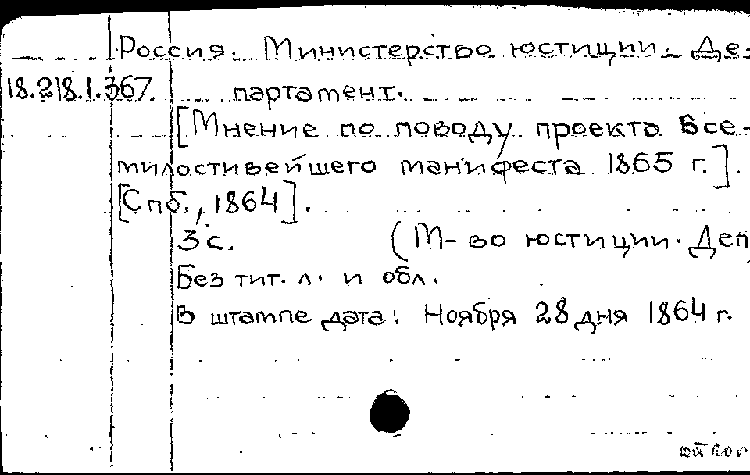 Россия. Министерство юстиции. Де-
18.218.1.367. партамент.
[Мнение по поводу проекта Все-
милостивейшего манифеста 1865 г.].
[Спб., 1864].
3 с. (М-во юстиции. Деп
Без тит. л. и обл.
В штампе дата: Ноября 28 дня 1864 г.